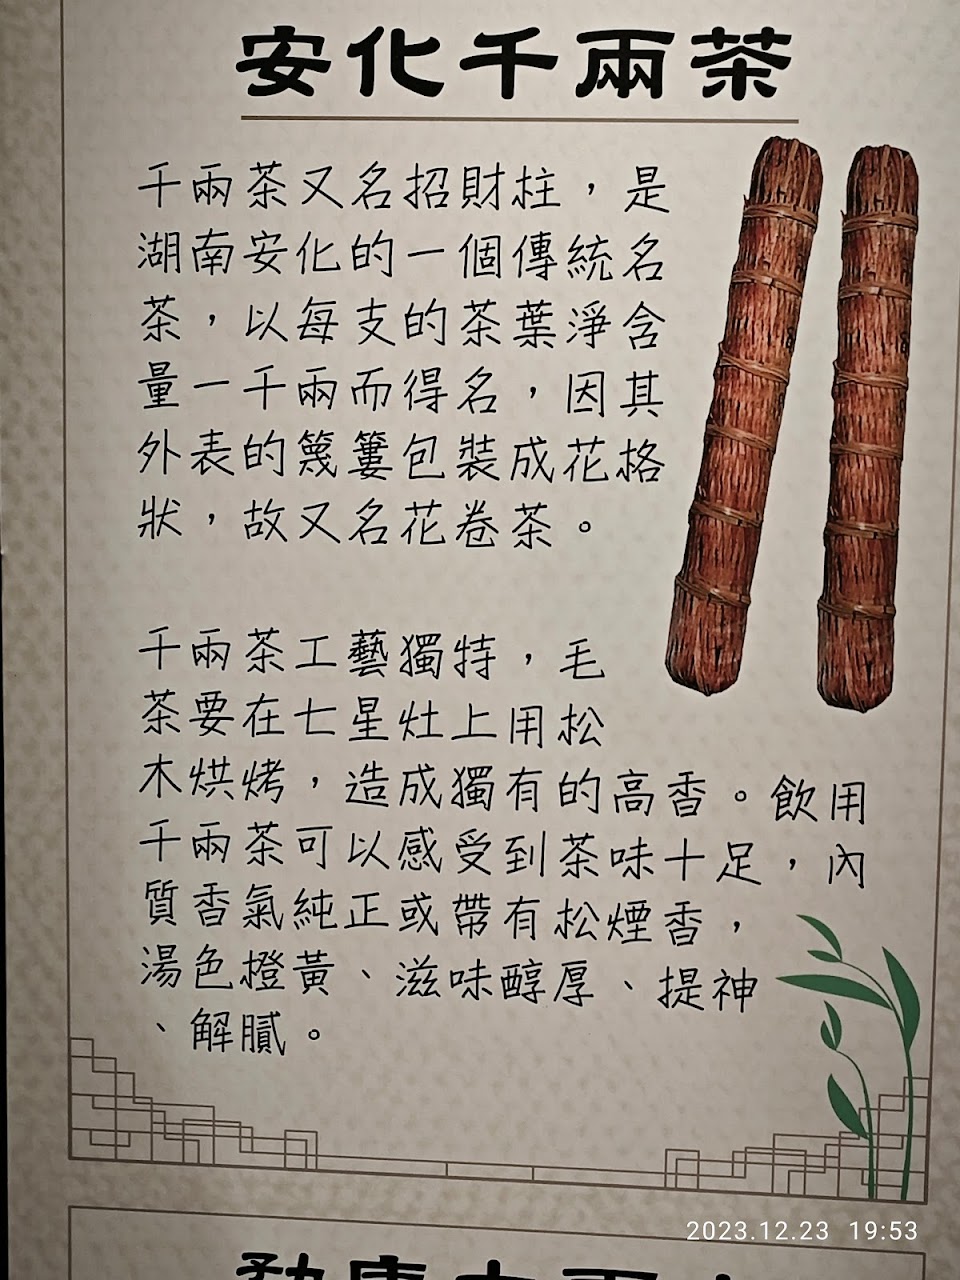 安化千兩茶
千兩茶又名招財柱，是
湖南安化的一個傳統名
茶，以每支的茶葉淨含
量一千兩而得名，因其
外表的篾簍包裝成花格
狀，故又名花卷茶。
千兩茶工藝獨特，毛
茶要在七星灶上用松
木烘烤，造成獨有的高香。飲用
千兩茶可以感受到茶味十足，內
質香氣純正或帶有松煙香，
湯色橙黃、滋味醇厚、提神
、解膩。
2023.12.23 19:53